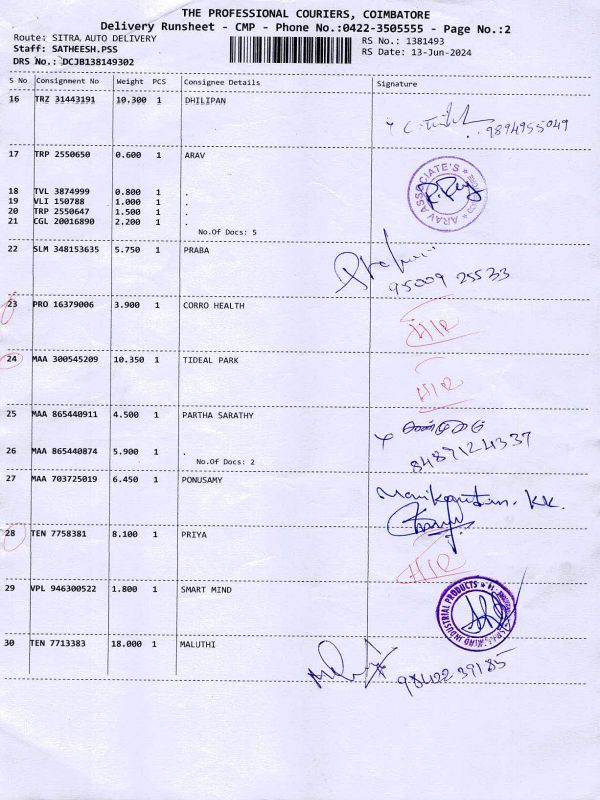 THE PROFESSIONAL COURIERS, COIMBATORE
Delivery Runsheet - CMP - Phone No.:0422-3505555 - Page No.:2
Route: SITRA AUTO DELIVERY
RS No.: 1381493
Staff: SATHEESH.PSS
RS Date: 13-Jun-2024
DRS No.: DCJB138149302
S No Consignment No Weight PCS Consignee Details Signature
16 TRZ 31443191 10.300 1 DHILIPAN
9894955049
17 TRP 2550650 0.600 1 ARAV
ARAV ASSOCIATE'S
18 TVL 3874999 0.800 1 .
19 VLI 150788 1.000 1 .
20 TRP 2550647 1.500 1 .
21 CGL 20016890 2.200 1 .
No.Of Docs: 5
22 SLM 348153635 5.750 1 PRABA
95009 25533
23 PRO 16379006 3.900 1 CORRO HEALTH
H/R
24 MAA 300545209 10.350 1 TIDEAL PARK
H/R
25 MAA 865440911 4.500 1 PARTHA SARATHY
8489124337
26 MAA 865440874 5.900 1 .
No.Of Docs: 2
27 MAA 703725019 6.450 1 PONUSAMY
Manikandan. KK.
28 TEN 7758381 8.100 1 PRIYA
H/R
29 VPL 946300522 1.800 1 SMART MIND
INDUSTRIAL PRODUCTS
30 TEN 7713383 18.000 1 MALUTHI
98422 39185